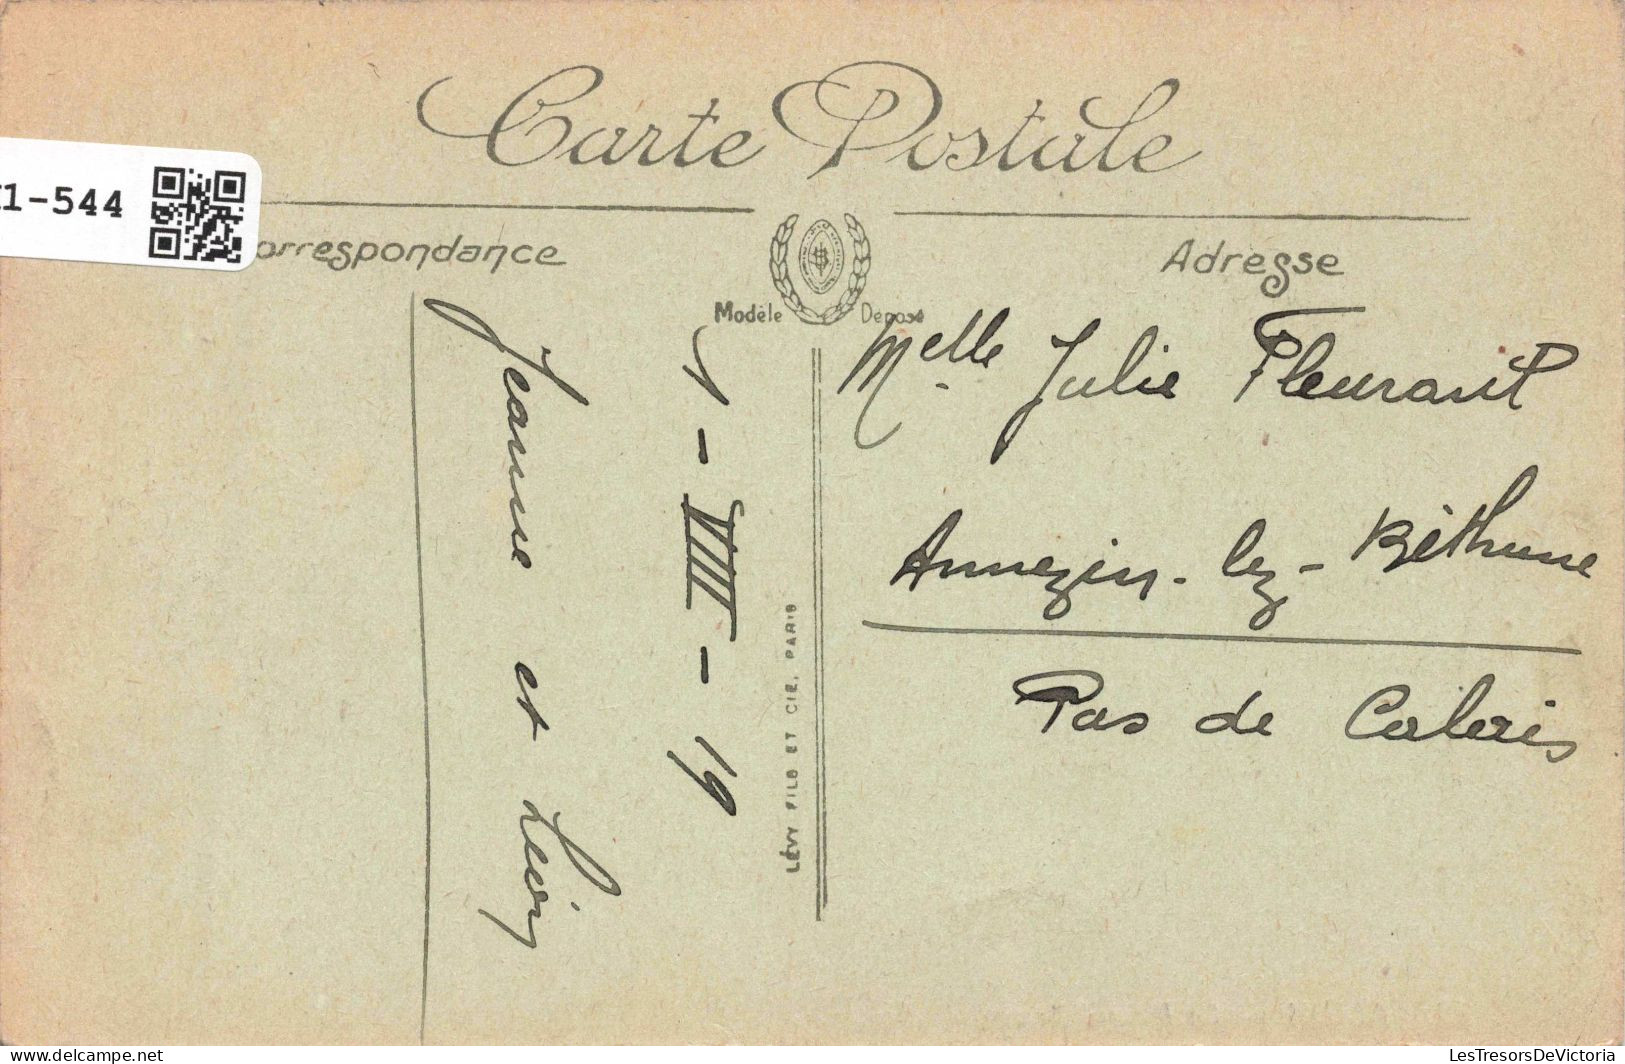 Carte Postale
1-544
orrespondance
Adresse
Modèle Déposé
Melle Julie Fleurant
Annezin-lez-Béthune
Pas de Calais
1-VIII-19
Jeanne et
LÉVY FILS ET CIE, PARIS
delcampe.net
LesTresorsDeVictoria